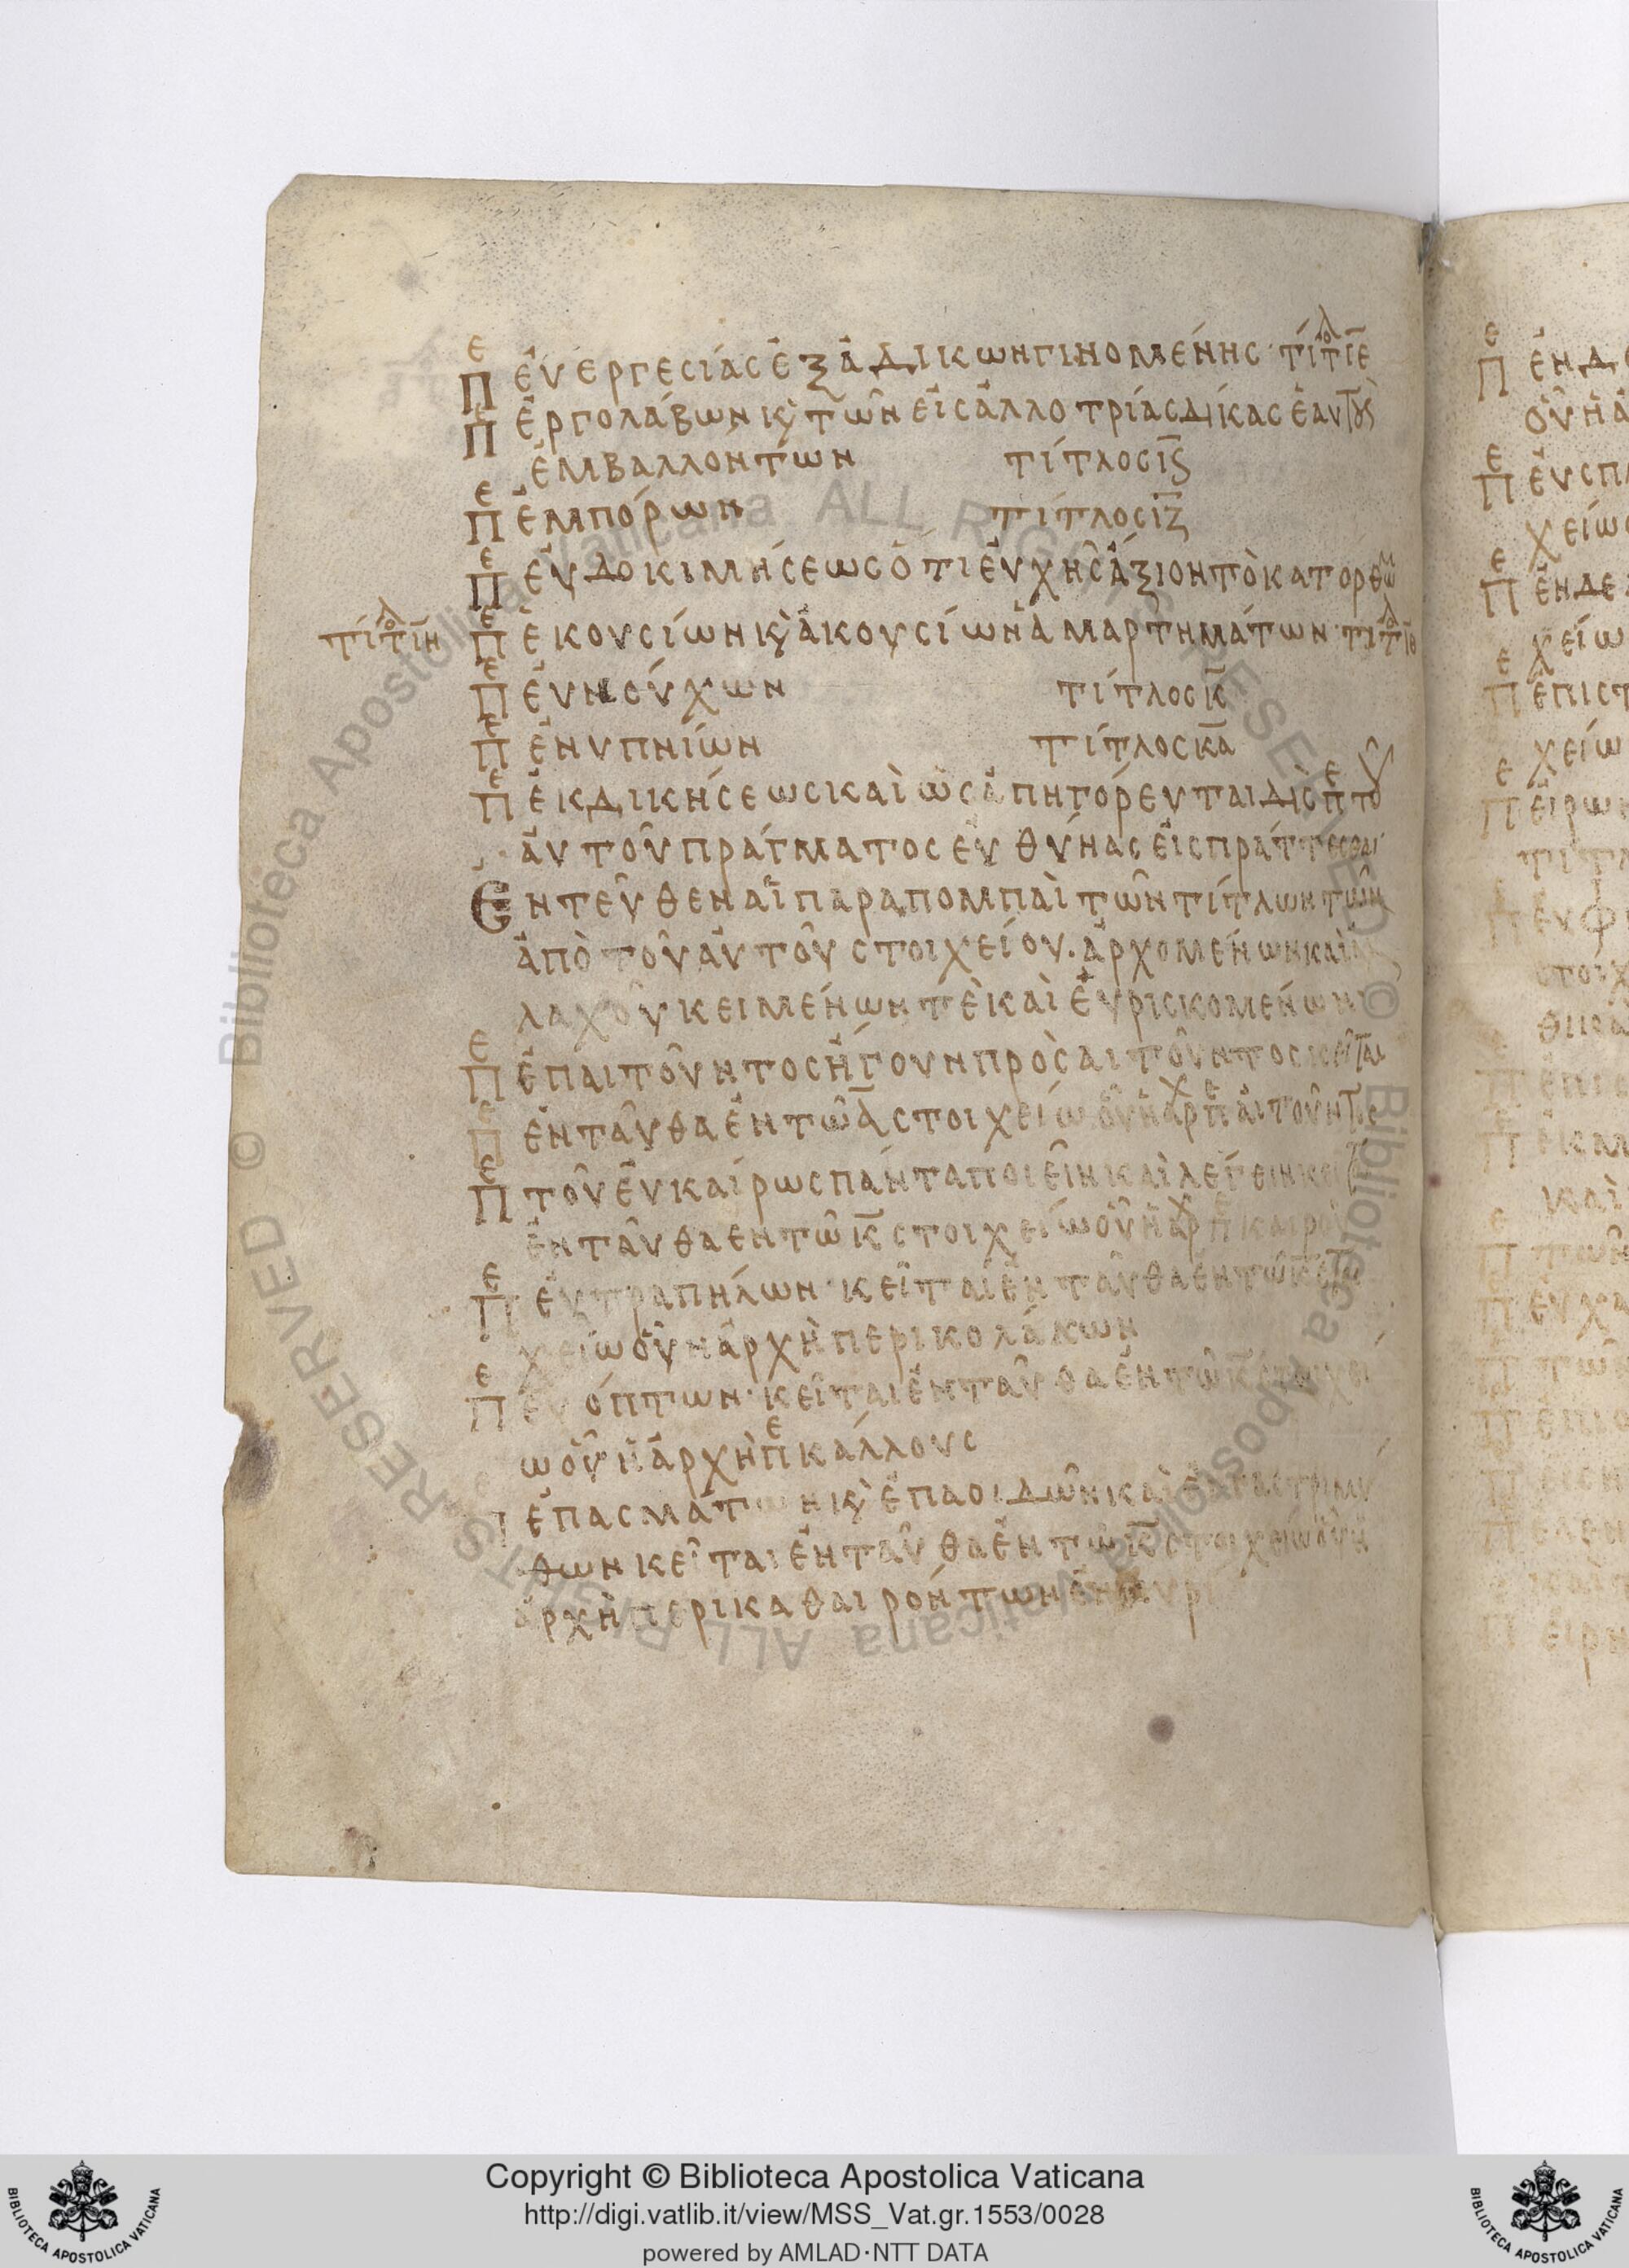 Πε εὐεργεσίας ἐξ ἀδίκων γινομένης· τίτλο ιε
Πε ἐργολάβων κ τῶν εἰς ἀλλοτρίας δίκας ἑαυτους
ἐμβαλλόντων τίτλος ις
Πε ἐμπόρων τίτλος ιζ
Πε εὐδοκιμήσεως ὅτι εὐχῆς ἄξιον τὸ κατορθω
τίτλο ιη
Πε ἑκουσίων κ ἀκουσίων ἁμαρτημάτων· τίτλο ιθ
Πε εὐνούχων τίτλος κ
Πε ἐνυπνίων τίτλος κα
Πε ἐκδικήσεως καὶ ὡς ἀπηγόρευται δὶς πε του
αὐτοῦ πράγματος εὐθύνας εἰσπράττεσθαι·
Ἐντεῦθεν αἱ παραπομπαὶ τῶν τίτλων τῶν
ἀπὸ τοῦ αὐτοῦ στοιχείου. ἀρχομένων καὶ ἀλ
λαχοῦ κειμένων τὲ καὶ εὑρισκομένων
Πε ἐπαιτοῦντος ἤγουν προσαιτοῦντος κεῖται
Πε ἐνταῦθα ἐν τῶ α στοιχείω οὗ ἡ αρχ πε ἀιτοῦντος
Πε τοῦ εὐκαίρως πάντα ποιεῖν καὶ λέγειν κειτ
ἐνταῦθα εν τῶ κ στοιχείω οὗ ἡ αρχ πε καιροῦ
Πε εὐτραπήλων· κεῖται ἐνταῦθα ἐν τῶ κ στοι
χείω οὗ ἡ ἀρχὴ περι κολάκων
Πε εὐόπτων· κεῖται ἐνταῦθα ἐν τῶ κ στοιχεί
ω οὗ ἡ ἀρχὴ πε κάλλους
Π ἐπασμάτων κ ἐπαοιδῶν καὶ ἐγγαστριμυ
θων κεῖται ἐνταῦθα ἐν τῶ κ στοιχείω οὗ ἡ
ἀρχὴ περι καθαιρόντων ἐν
Copyright © Biblioteca Apostolica Vaticana
http://digi.vatlib.it/view/MSS_Vat.gr.1553/0028
powered by AMLAD·NTT DATA